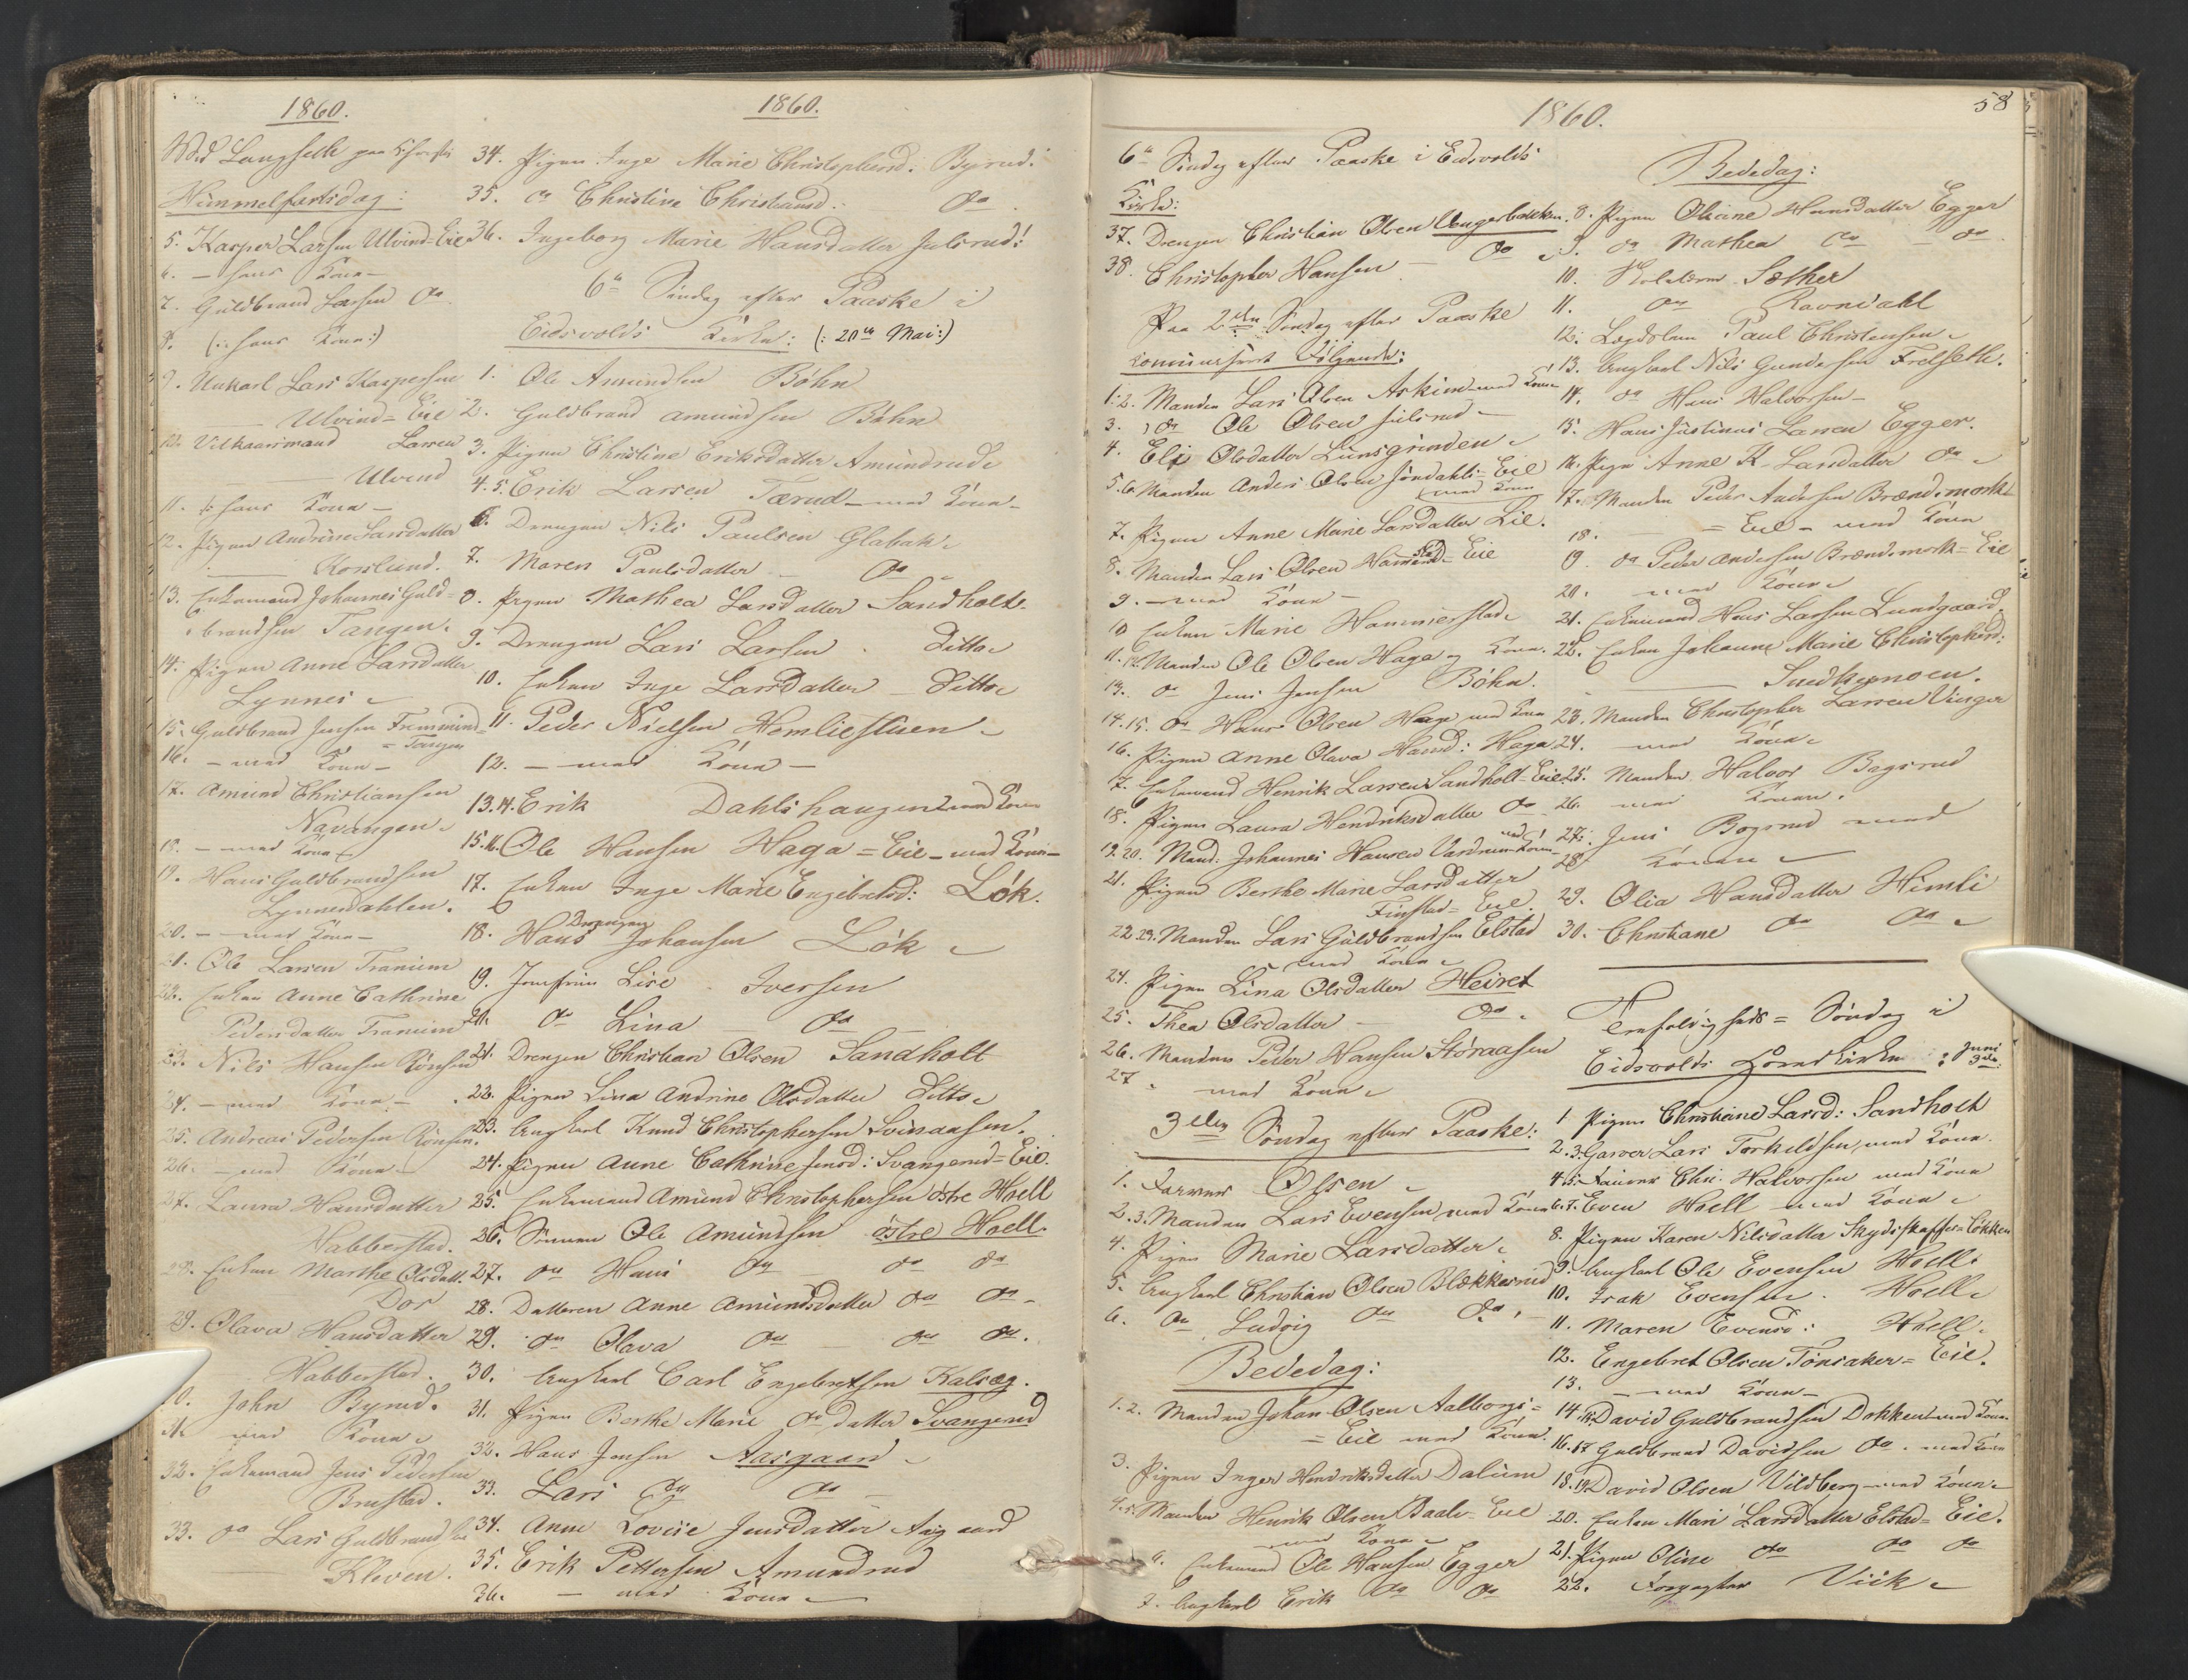 1860.
Ved Langseth paa Christi
Himmelfartsdag:
5. Kasper Larsen Ulvind=Eie
6. – hans Kone –
7. Guldbrand Larsen do
8. (: hans Kone:)
9. Unkarl Lars Kaspersen
Ulvind=Eie
10. Vilkaarsmand Larsen
Ulvind
11. hans Kone –
12. Pigen Andrine Larsdatter
Korslund.
13. Enkemand Johannes Guld=
brandsen Tangen.
14. Pigen Anne Larsdatter
Lynnes
15. Guldbrand Jensen
= Tangen
16. – med Kone –
17. Amund Christiansen
Navangen
18. – med Kone
19. Hans Guldbrandsen
Lynnesdahlen.
20. – med Kone –
21. Ole Larsen Tranium
22. Enken Anne Cathrine
Pedersdatter Tranium
23. Nils Hansen Rønsen
24. – med Kone –
25. Andreas Pedersen Rønsen.
26. – med Kone –
27. Laura Hansdatter
Habberstad.
28. Enken Marthe Olsdatt.
Dor
29. Olava Hansdatter
Habberstad.
30. John Byrud.
31. med Kone
32. Enkemand Jens Pedersen
Brustad.
33. do Lars Guldbrandsen
Kleven.
1860.
34. Pigen Inge Marie Christophersd. Byrud.
35. do Christine Christiansd. do
36. Ingeborg Marie Hansdatter Julsrud.
6te Søndag efter Paaske i
Eidsvolds Kirke: (: 20de Mai:)
1. Ole Amundsen Bøhn
2. Guldbrand Amundsen Bøhn
3. Pigen Christine Eriksdatter Amundrud
4.5. Erik Larsen Tærud – med Kone –
6. Drengen Nils Paulsen Glabak
7. Maren Paulsdatter – do
8. Pigen Mathea Larsdatter Sandholt.
9. Drengen Lars Larsen ditto
10. Enken Inge Larsdatter – ditto
11. Peder Nielsen Homliestuen
12. – med Kone –
13.14. Erik Dahlshaugen med Kone
15.16. Ole Hansen Haga=Eie – med Kone –
17. Enken Inge Marie Engebretsd: Løk.
18. Drengen Hans Johansen Løk
19. Jomfru Lise Iversen
20. do Lina – do –
21. Drengen Christian Olsen Sandholt
22. Pigen Lina Andrine Olsdatter ditto
23. Ungkarl Knud Christophersen Svinaasen.
24. Pigen Anne Cathrine Jensd: Svangerud=Eie.
25. Enkemand Amund Christophersen østre Hoell
26. Sønnen Ole Amundsen østre Hoell.
27. do Hans do do do
28. Datteren Anne Amundsdatter do do –
29. do Olava do – do do.
30. Ungkarl Carl Engebretsen Kalsæg.
31. Pigen Berthe Marie do datter Svangerud
32. Hans Jensen Aasgaard
33. Lars do do –
34. Anne Lovise Jensdatter Aasgaard
35. Erik Pettersen Amundrud
36. – med Kone
1860.
58
6te Søndag efter Paaske i Eidsvolds
Kirke:
37. Drengen Christian Olsen Vengerbakken.
38. Christopher Hansen – do
Paa 2den Søndag efter Paaske
communiserte Følgende:
1.2. Manden Lars Olsen Askim med Kone
3. do Ole Olsen Julsrud –
4. Eli Olsdatter Lunsgrinden
5.6. Manden Anders Olsen Jøndahls=Eie
med Kone
7. Pigen Anne Marie Larsdatter Lie.
8. Manden Lars Olsen Hammerstad=Eie
9. – med Kone –
10 Enken Marie Hammerstad
11.12. Manden Ole Olsen Haga og Kone.
13. do Jens Jensen Bøhn.
14.15. do Hans Olsen Haga med Kone
16. Pigen Anne Olava Hansd: Haga
17. Enkemand Henrik Larsen Sandholt=Eie
18. Pigen Laura Hendriksdatter do
19.20. Mand. Johannes Hansen Vardrum med Kone
21. Pigen Berthe Marie Larsdatter
Finstad=Eie.
22.23. Manden Lars Guldbrandsen Elstad
med Kone
24. Pigen Lina Olsdatter Heiret
25. Thea Olsdatter – do.
26. Manden Peder Hansen Støraasen
27 – med Kone
3die Søndag efter Paaske:
1. Farver Olsen
2.3. Manden Lars Evensen med Kone
4. Pigen Marie Larsdatter
5. Ungkarl Christian Olsen Blekkerud
6. do Ludvig do do.
Bededag:
1.2. Manden Johan Olsen Aalborgs=
=Eie med Kone.
3. Pigen Inger Hendriksdatter Dalum
4.5. Manden Henrik Olsen Baals=Eie
med Kone
6. Enkemand Ole Hansen Egger
7. Ungkarl Erik do do
Bededag:
8. Pigen Oliane Hansdatter Egger
9. do Mathea do – do.
10. Sæther
11. do Ravndahl
12. Lægdslem Paul Christensen
13. Ungkarl Nils Gundersen Frelseth.
14. do Hans Halvorsen –
15. Hans Justinus Larsen Egger.
16. Pigen Anne K. Larsdatter do
17. Manden Peder Andersen Brændsmork
18. – =Eie – med Kone
19. do Peder Andersen Brændsmork=Eie
20. med Kone
21. Enkemand Hans Larsen Lundgaard.
22. Enken Johanne Marie Christophersd:
23. Manden Christopher Larsen Vinger
24. – med Kone
25. Manden Halvor Bagsrud
26. med Konen.
27. Jens Bogsrud med
28 Konen
29. Olia Hansdatter Himle
30. Christiane do do
Trefoldigheds=Søndag i
Eidsvolds Hovedkirke: 3de Juni
1 Pigen Christiane Larsd: Sandholt
2.3. Garver Lars Torkeldsen med Kone.
4.5. Chr. Halvorsen med Kone
6.7. Even Hoell med Kone
8. Pigen Karen Nilsdatter Skydsskaffer=Løkken
9. Ungkarl Ole Evensen Hoell.
10. Isak Evensen. Hoell
11. Maren Evensd: Hoell.
12. Engebret Olsen Tønsaker=Eie.
13. – med Kone –
14.15. David Guldbrandsen Dokken med Kone.
16.17 Guldbrand Davidsen do. med Kone
18.19. David Olsen Vildberg med Kone
20. Enken Mari Larsdatter Elstad=Eie.
21. Pigen Oline do do do
22. Forpagter Viik